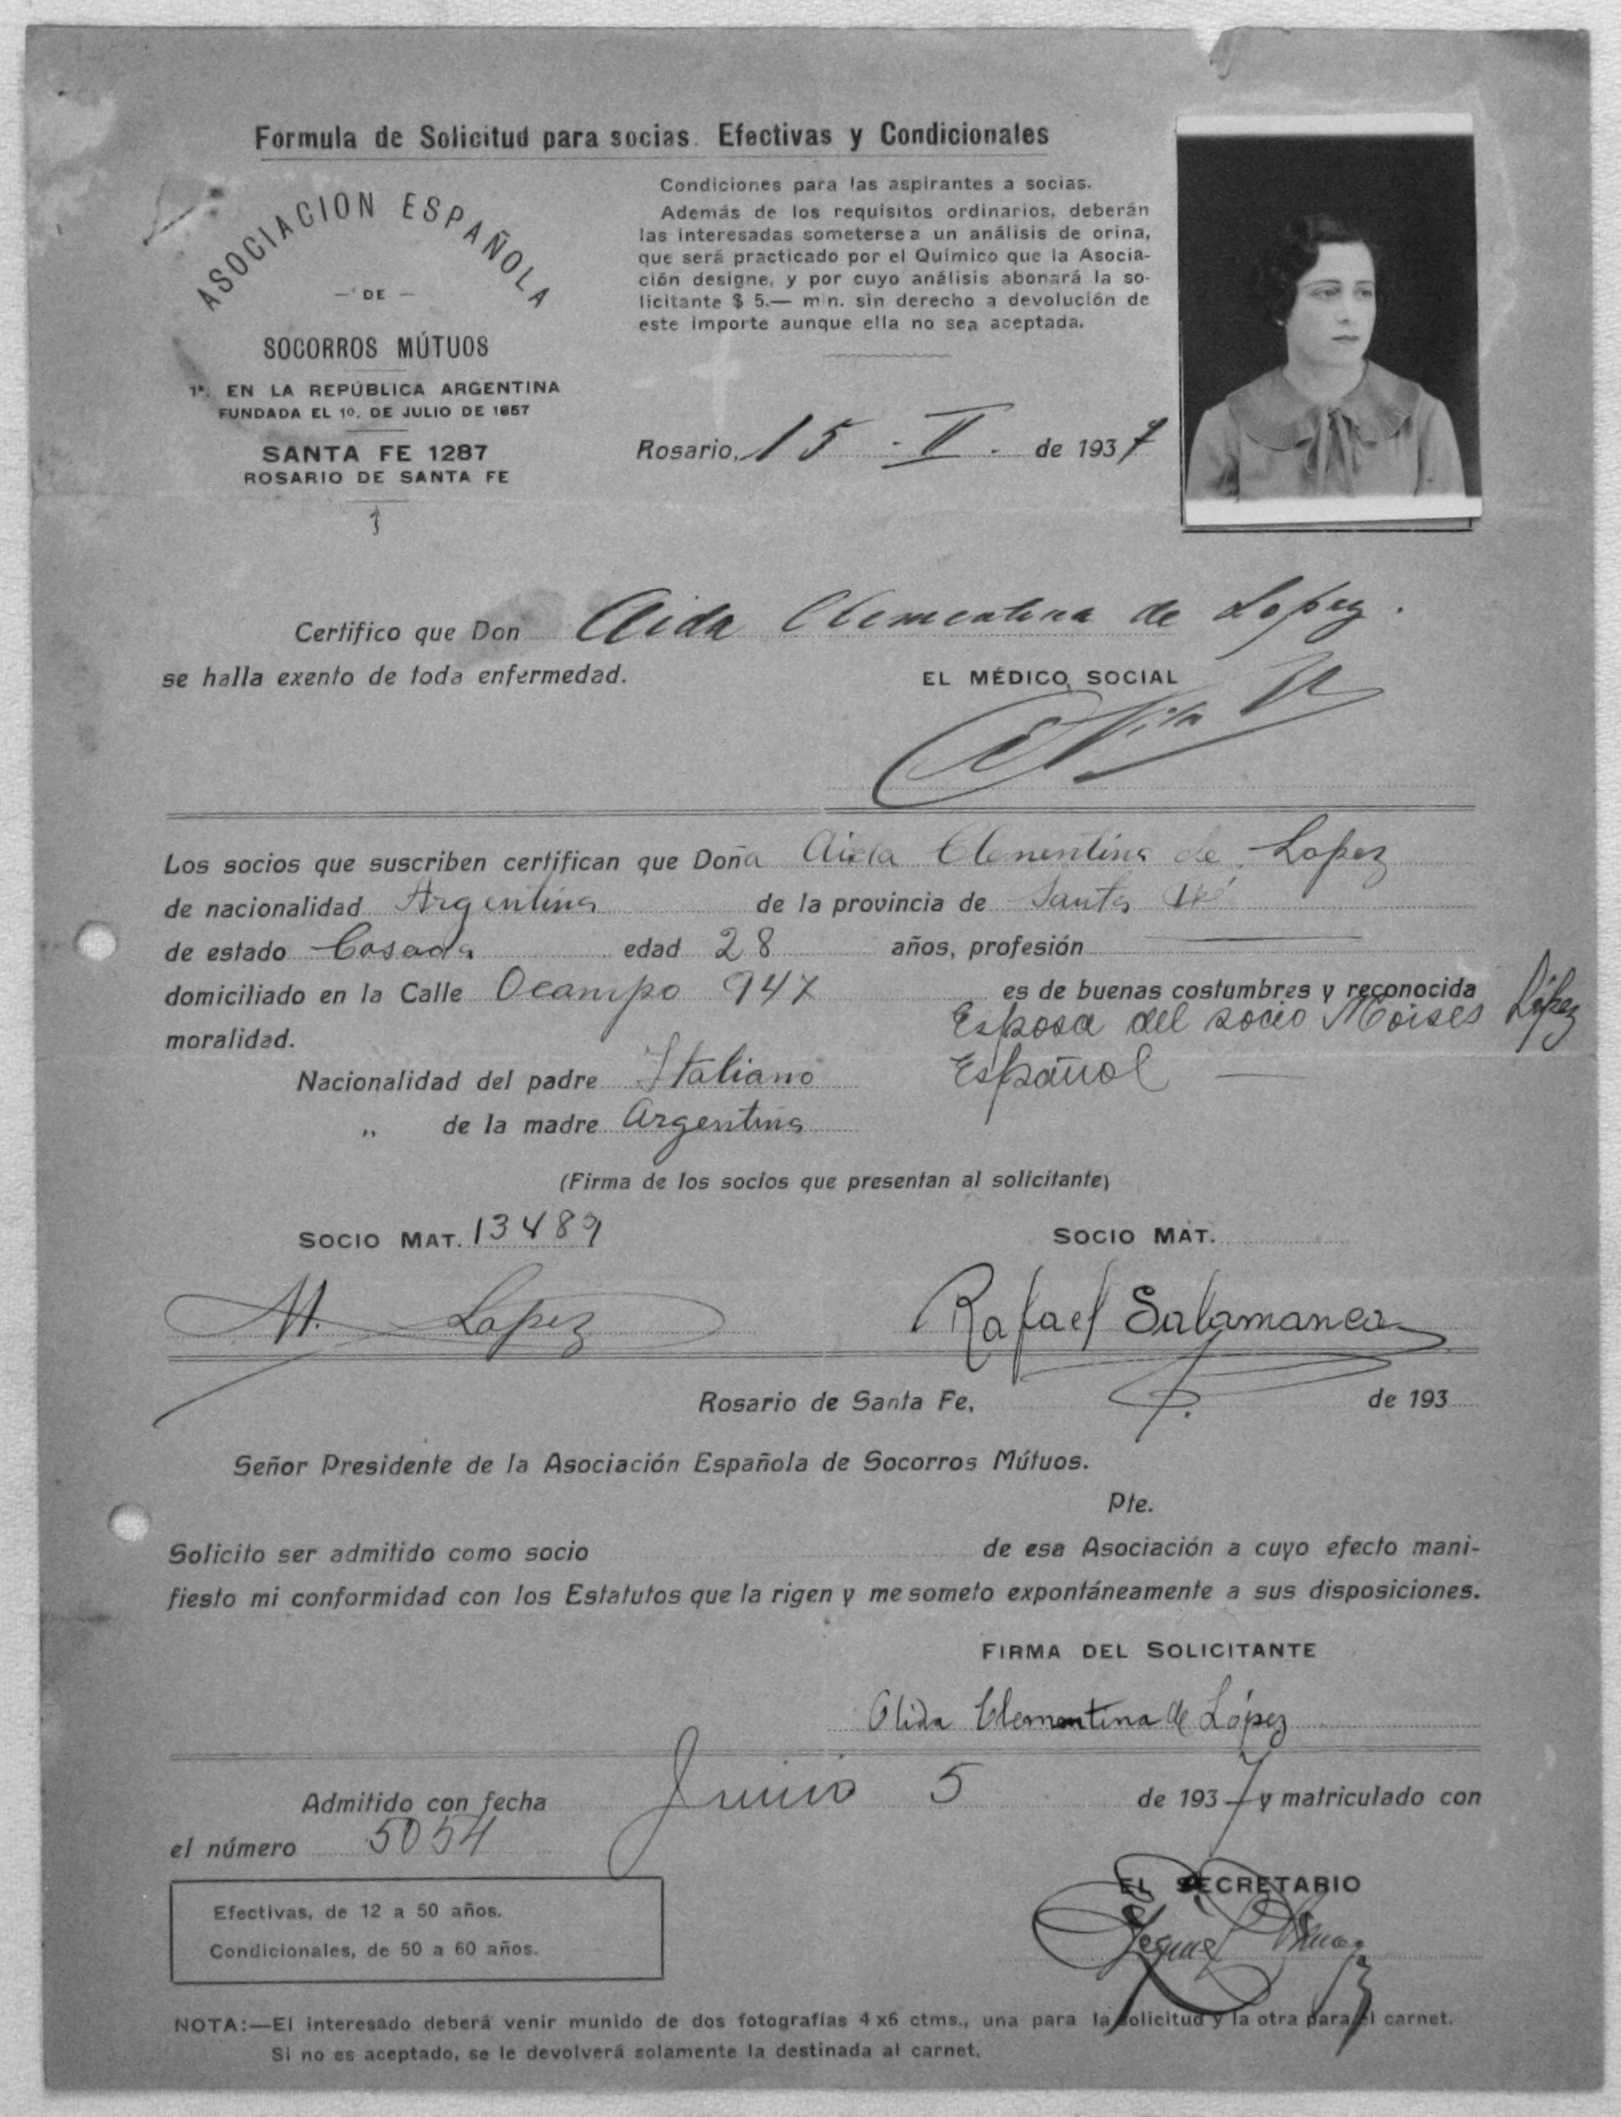 Formula de Solicitud para socias. Efectivas y Condicionales
ASOCIACION ESPAÑOLA
— DE —
SOCORROS MÚTUOS
1ª. EN LA REPÚBLICA ARGENTINA
FUNDADA EL 10. DE JULIO DE 1857
SANTA FE 1287
ROSARIO DE SANTA FE
Condiciones para las aspirantes a socias.
Además de los requisitos ordinarios, deberán
las interesadas someterse a un análisis de orina,
que será practicado por el Químico que la Asocia-
ción designe, y por cuyo análisis abonará la so-
licitante $ 5.— m n. sin derecho a devolución de
este importe aunque ella no sea aceptada.
Rosario, 15 - V - de 1937
Certifico que Don Aida Clementina de Lopez.
se halla exento de toda enfermedad.
EL MÉDICO SOCIAL
Los socios que suscriben certifican que Doña Aida Clementina de Lopez
de nacionalidad Argentina de la provincia de Santa Fé
de estado Casada edad 28 años, profesión
domiciliado en la Calle Ocampo 947 es de buenas costumbres y reconocida
moralidad. Esposa del socio Moises López
Español
Nacionalidad del padre Italiano
„ de la madre Argentina
(Firma de los socios que presentan al solicitante)
SOCIO MAT. 13489 SOCIO MAT.
M. Lopez Rafael Salamanca
Rosario de Santa Fe, de 193
Señor Presidente de la Asociación Española de Socorros Mútuos.
Pte.
Solicito ser admitido como socio de esa Asociación a cuyo efecto mani-
fiesto mi conformidad con los Estatutos que la rigen y me someto expontáneamente a sus disposiciones.
FIRMA DEL SOLICITANTE
Aida Clementina de López
Admitido con fecha Junio 5 de 1937 y matriculado con
el número 5054
EL SECRETARIO
Efectivas, de 12 a 50 años.
Condicionales, de 50 a 60 años.
NOTA:—El interesado deberá venir munido de dos fotografías 4x6 ctms., una para la solicitud y la otra para el carnet.
Si no es aceptado, se le devolverá solamente la destinada al carnet.